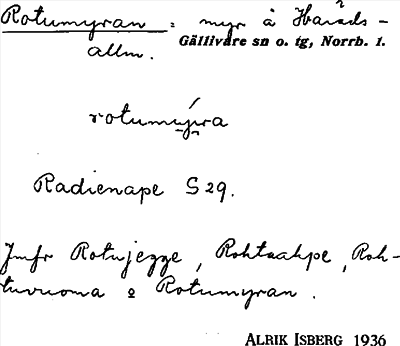 Rotumyran : myr å Härads-
allm.
Gällivare sn o. tg, Norrb. l.
rotumyra
Radienape S 29.
Jmfr Rotujegge, Rohtaahpe, Roh-
tuvuoma o Rotumyran.
ALRIK ISBERG 1936